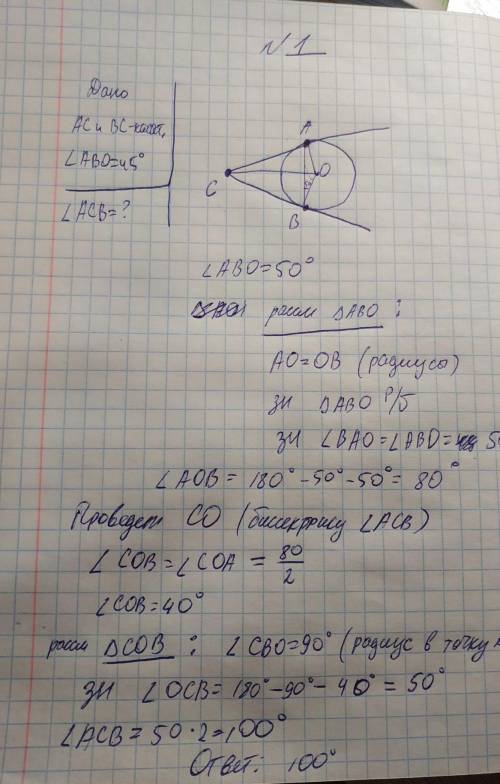 N1
Дано
AC и BC-касат,
∠ABO=45°
∠ACB=?
A
O
C
B
∠ABO=50°
рассм ΔABO :
AO=OB (радиусы)
зн ΔABO р/б
зн ∠BAO=∠ABO= 5
∠AOB = 180°-50°-50°= 80°
Проведем CO (биссектрису ∠ACB)
∠COB=∠COA = 80/2
∠COB=40°
рассм ΔCOB : ∠CBO=90° (радиус в точку
зн ∠OCB=180°-90°-40°=50°
∠ACB=50·2=100°
Ответ: 100°